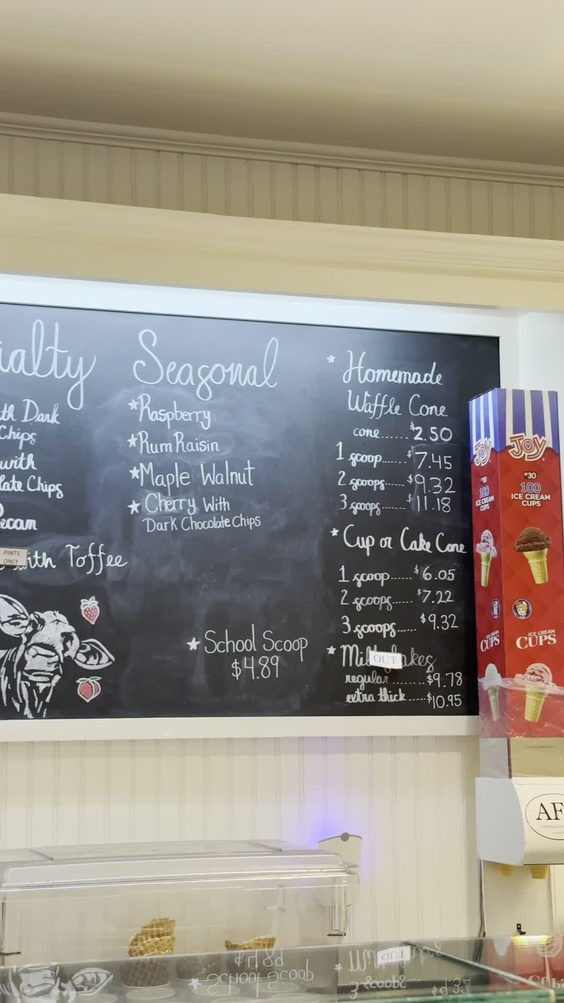 Seasonal
*Raspberry
*Rum Raisin
*Maple Walnut
*Cherry With
Dark Chocolate Chips
*School Scoop
$4.89
th Dark
Chips
with
late Chips
ecan
PINTS
ONLY
with Toffee
* Homemade
Waffle Cone
cone......$2.50
1 scoop....$7.45
2 scoops...$9.32
3 scoops...$11.18
* Cup or Cake Cone
1 scoop......$6.05
2 scoops.....$7.22
3 scoops.....$9.32
OUT
regular......$9.78
extra thick....$10.95
JOY
#30
100
ICE CREAM
CUPS
ICE CREAM
CUPS
AF